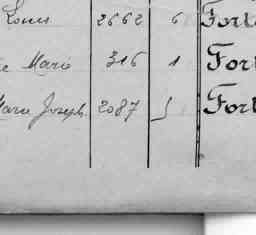 Louis 2662 6 Fort
Marie 316 1 Fort
Marie Joseph 2087 Fort